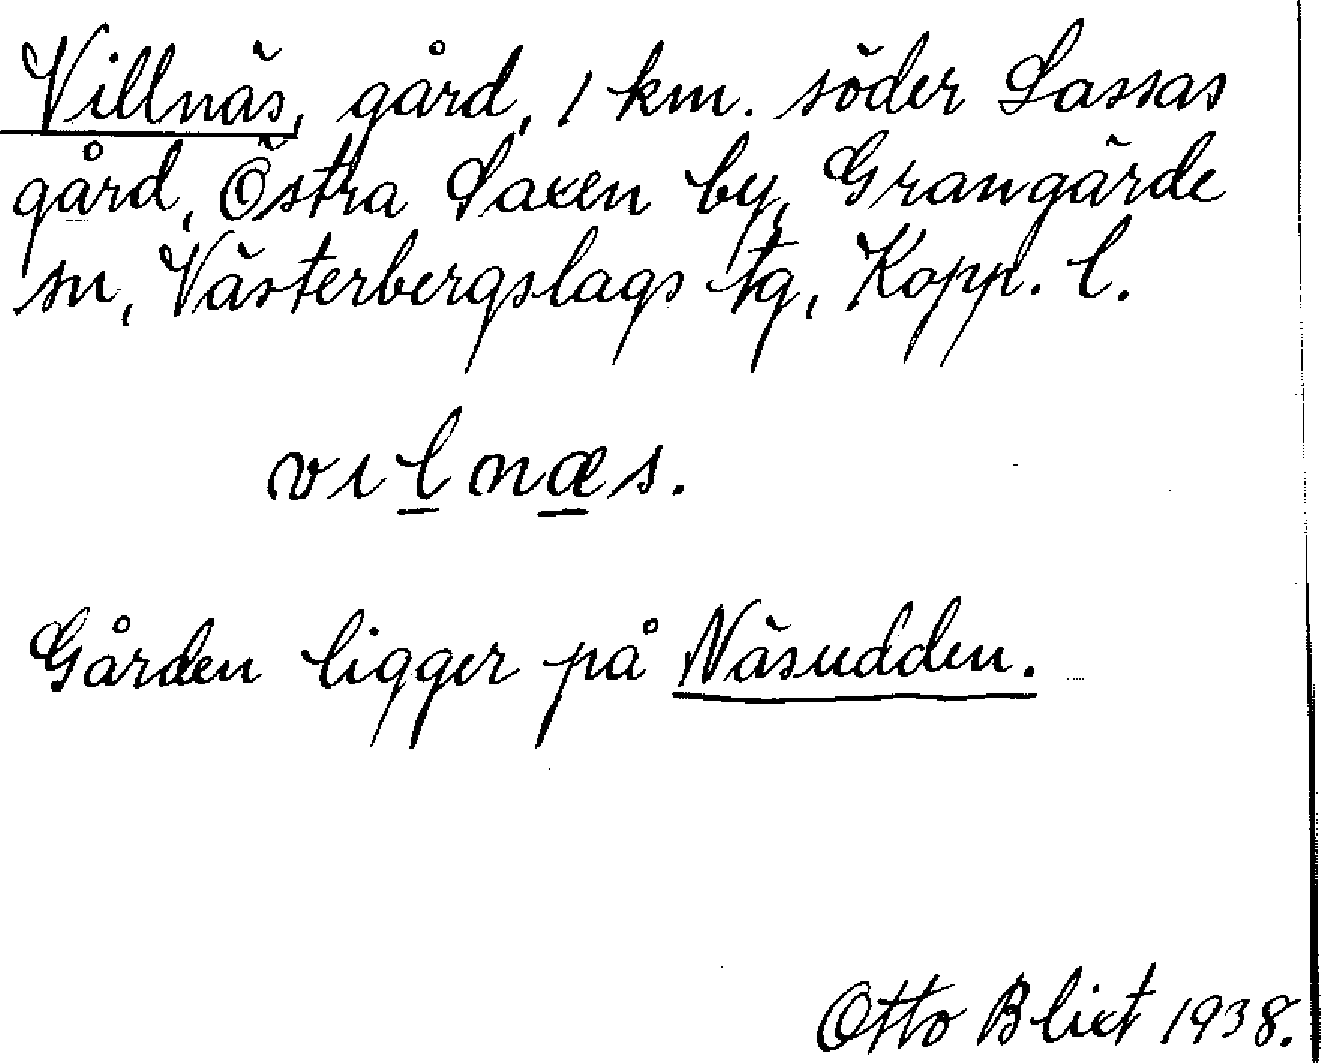 Villnäs, gård, 1 km. söder Lassas
gård, Östra Saxen by, Grangärde
sn, Västerbergslags tg, Kopp. l.
vılnæs.
Gården ligger på Näsudden.
Otto Blixt 1938.